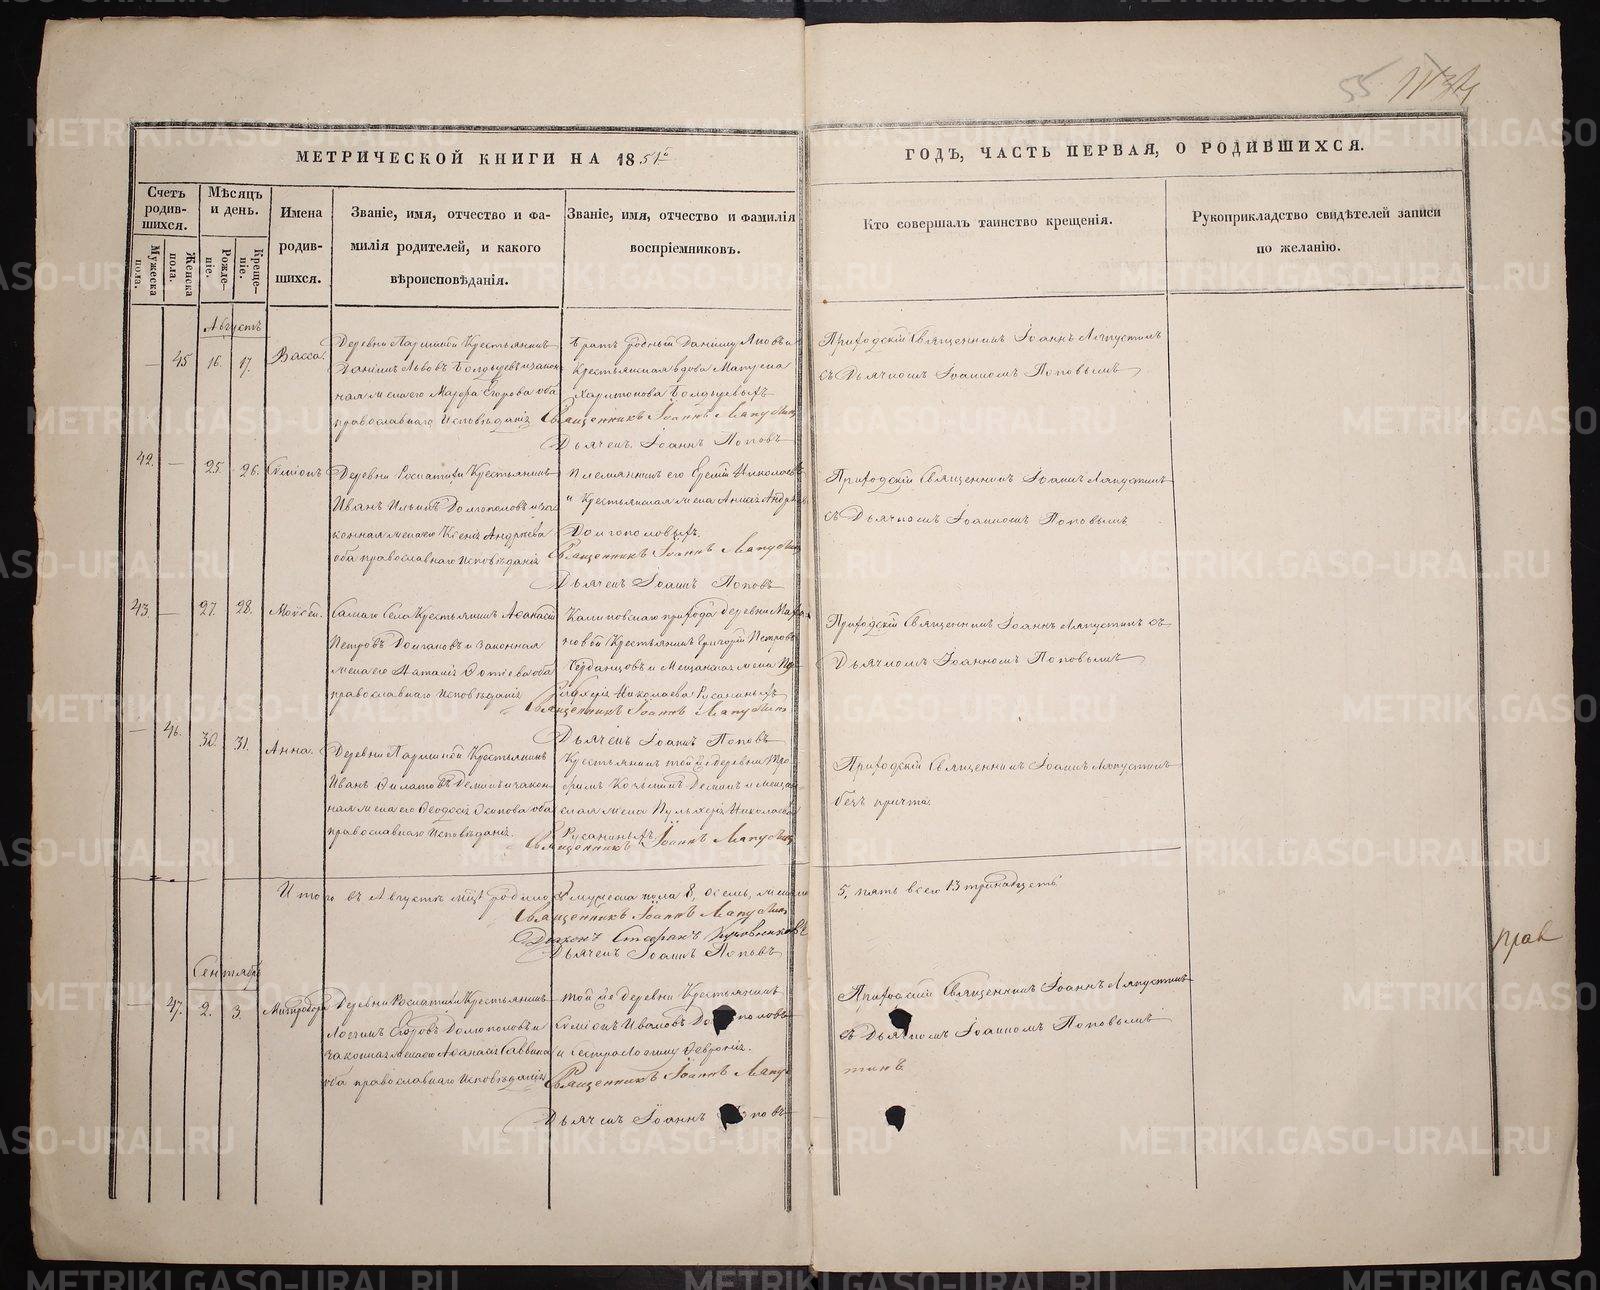 55 1134
МЕТРИЧЕСКОЙ КНИГИ НА 1851
ГОДЪ, ЧАСТЬ ПЕРВАЯ, О РОДИВШИХСЯ.
Счетъ родив-шихся.
Мужеска пола.
Женска пола.
Мѣсяцъ и день.
Рожде-ніе.
Креще-ніе.
Имена родив-шихся.
Званіе, имя, отчество и фа-
милія родителей, и какого
вѣроисповѣданія.
Званіе, имя, отчество и фамилія
воспріемниковъ.
Кто совершалъ таинство крещенія.
Рукоприкладство свидѣтелей записи
по желанію.
Августъ
45 16. 17. Васса.
Деревни Крестьянинъ
Даніилъ Львовъ Болдыревъ и закон
ная жена его Мавра Егорова оба
православнаго Исповѣданія
братъ родный Даніилу Яковъ и
Крестьянская вдова Матрена
Харитонова Болдыревыхъ
Священникъ Іоаннъ Ляпустинъ
Дьячекъ Іоаннъ Поповъ
Приходскій Священникъ Іоаннъ Ляпустинъ
съ Дьячкомъ Іоанномъ Поповымъ
42. 25. 26. Симіонъ
Деревни Крестьянинъ
Иванъ Ильинъ Долгополовъ и за
конная жена его Ксенія Андреева
оба православнаго Исповѣданія
Племянникъ его Еремій Николаевъ
и Крестьянская жена Анисія Андреева
Долгополовыхъ.
Священникъ Іоаннъ Ляпустинъ
Дьячекъ Іоаннъ Поповъ
Приходскій Священникъ Іоаннъ Ляпустинъ
съ Дьячкомъ Іоанномъ Поповымъ
43. 27. 28. Моѵсей.
Самаго Села Крестьянинъ Аѳанасій
Петровъ и законная
жена его Наталія Фотіева оба
православнаго Исповѣданія
прихода деревни
Крестьянинъ Григорій Петровъ
и Мещанская жена
Николаева Русаниныхъ
Священникъ Іоаннъ Ляпустинъ
Дьячекъ Іоаннъ Поповъ
Приходскій Священникъ Іоаннъ Ляпустинъ съ
Дьячкомъ Іоанномъ Поповымъ
46. 30. 31. Анна.
Деревни Крестьянинъ
Иванъ Филатовъ Деминъ и закон-
ная жена его Ѳеодосія оба
православнаго Исповѣданія.
Крестьянинъ той же деревни Тро-
фимъ Козьминъ Деминъ и мещан-
ская жена Пульхерія Николаева
Русаниныхъ
Священникъ Іоаннъ Ляпустинъ
Приходскій Священникъ Іоаннъ Ляпустинъ
безъ причта.
Итого въ Августѣ м͠цѣ родилось мужеска пола 8, осмь, женска
5, пять всего 13 тринадцать
Священникъ Іоаннъ Ляпустинъ
Діаконъ Стефанъ
Дьячекъ Іоаннъ Поповъ
прав
Сентябрь
47. 2. 3. Митродора
Деревни Крестьянинъ
Логинъ Егоровъ Долгополовъ и
законная жена его Аѳанасія Саввина
оба православнаго Исповѣданія
той же деревни Крестьянинъ
Симіонъ Ивановъ Долгополовъ
и сестра Логину Февронія.
Священникъ Іоаннъ Ляпус
Дьячекъ Іоаннъ Поповъ
Приходскій Священникъ Іоаннъ Ляпустинъ
съ Дьячкомъ Іоанномъ Поповымъ
тинъ
METRIKI.GASO-URAL.RU